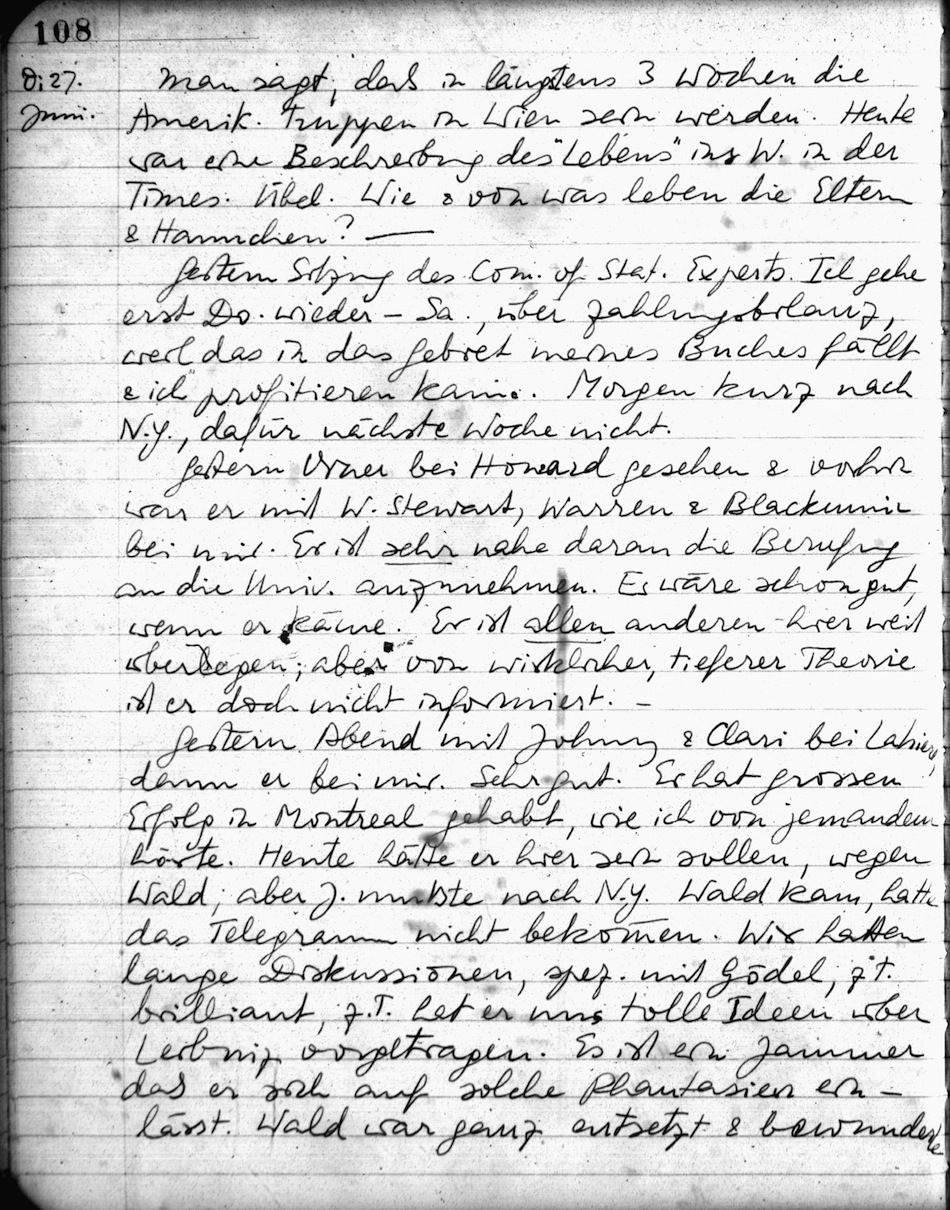 108
Di 27. Man sagt, dass in längstens 3 Wochen die
Juni. Amerik. Truppen in Wien sein werden. Heute
war eine Beschreibung des "Lebens" in W. in der
Times. Übel. Wie & von was leben die Eltern
& Hannchen? —
Gestern Sitzung des Com. of Stat. Experts. Ich gehe
erst Do. wieder – Sa., über Zahlungsbilanz,
weil das in das Gebiet meines Buches fällt
& ich profitieren kann. Morgen kurz nach
N.Y., dafür nächste Woche nicht.
Gestern Viner bei Howard gesehen & vorhin
war er mit W. Stewart, Warren & Blackumir
bei mir. Er ist sehr nahe daran die Berufung
an die Univ. anzunehmen. Es wäre schon gut,
wenn er käme. Er ist allen anderen hier weit
überlegen; aber von wirklicher, tieferer Theorie
ist er doch nicht informiert. –
Gestern Abend mit Johnny & Clari bei
dann er bei mir. Sehr gut. Er hat grossen
Erfolg in Montreal gehabt, wie ich von jemandem
hörte. Heute hätte er hier sein sollen, wegen
Wald; aber J. musste nach N.Y. Wald kam, hatte
das Telegramm nicht bekom̄en. Wir hatten
lange Diskussionen, spez. mit Gödel, z.T.
brilliant, z.T. hat er uns tolle Ideen über
Leibniz vorgetragen. Es ist ein Jammer
das er sich auf solche Phantasien ein –
lässt. Wald war ganz entsetzt & bewunderte